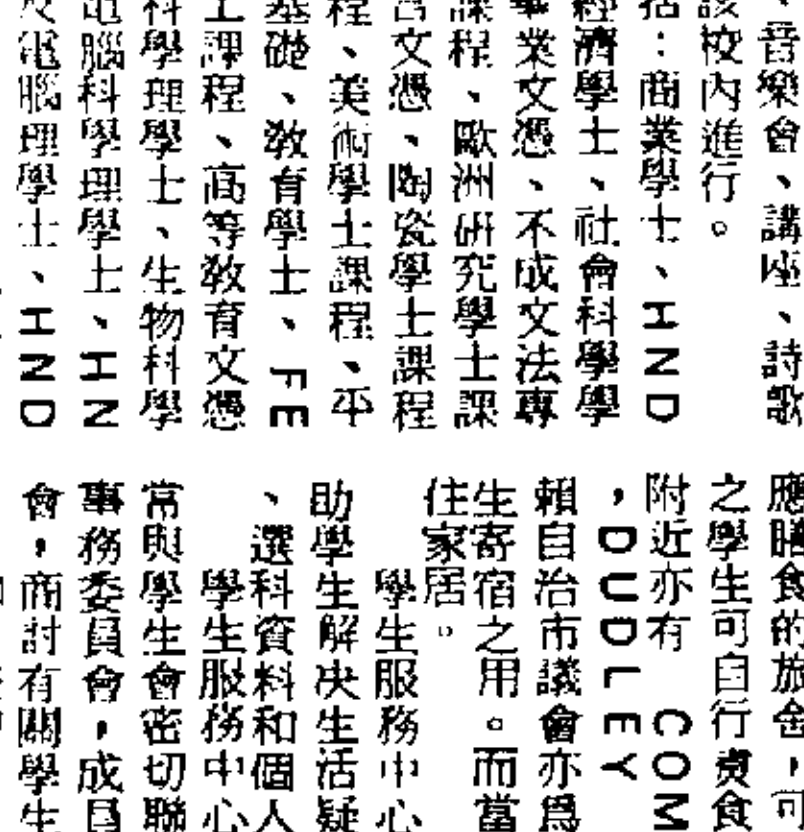 、音樂會、講座、詩歌
該校內進行。
括：商業學士、HND
經濟學士、社會科學學
畢業文憑、不成文法專
課程、歐洲研究學士課
言文憑、陶瓷學士課程
程、美術學士課程、平
基礎、教育學士、FE
士課程、高等教育文憑
科學理學士、生物科學
電腦科學理學士、HN
及電腦理學士、HND
應膳食的旅舍，可
之學生可自行煑食
附近亦有 COM
，DUDLEY
賴自治市議會亦爲
生寄宿之用。而當
住家居。
學生服務中心
助學生解決生活疑
、選科資料和個人
學生服務中心
常與學生會密切聯
事務委員會，成員
會，商討有關學生